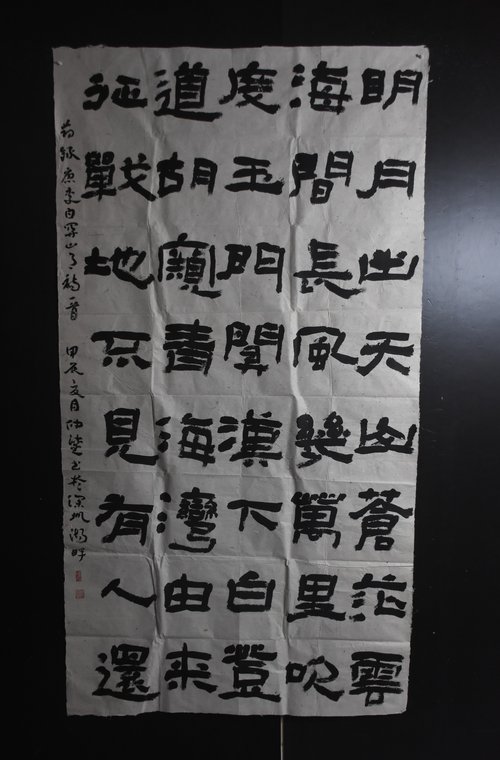 明月出天山蒼茫雲
海間長風幾萬里吹
度玉門關漢下白登
道胡窺青海灣由来
征戰地不見有人還
節録唐李白関山月詩一首 甲辰夏月 書於深圳湖畔